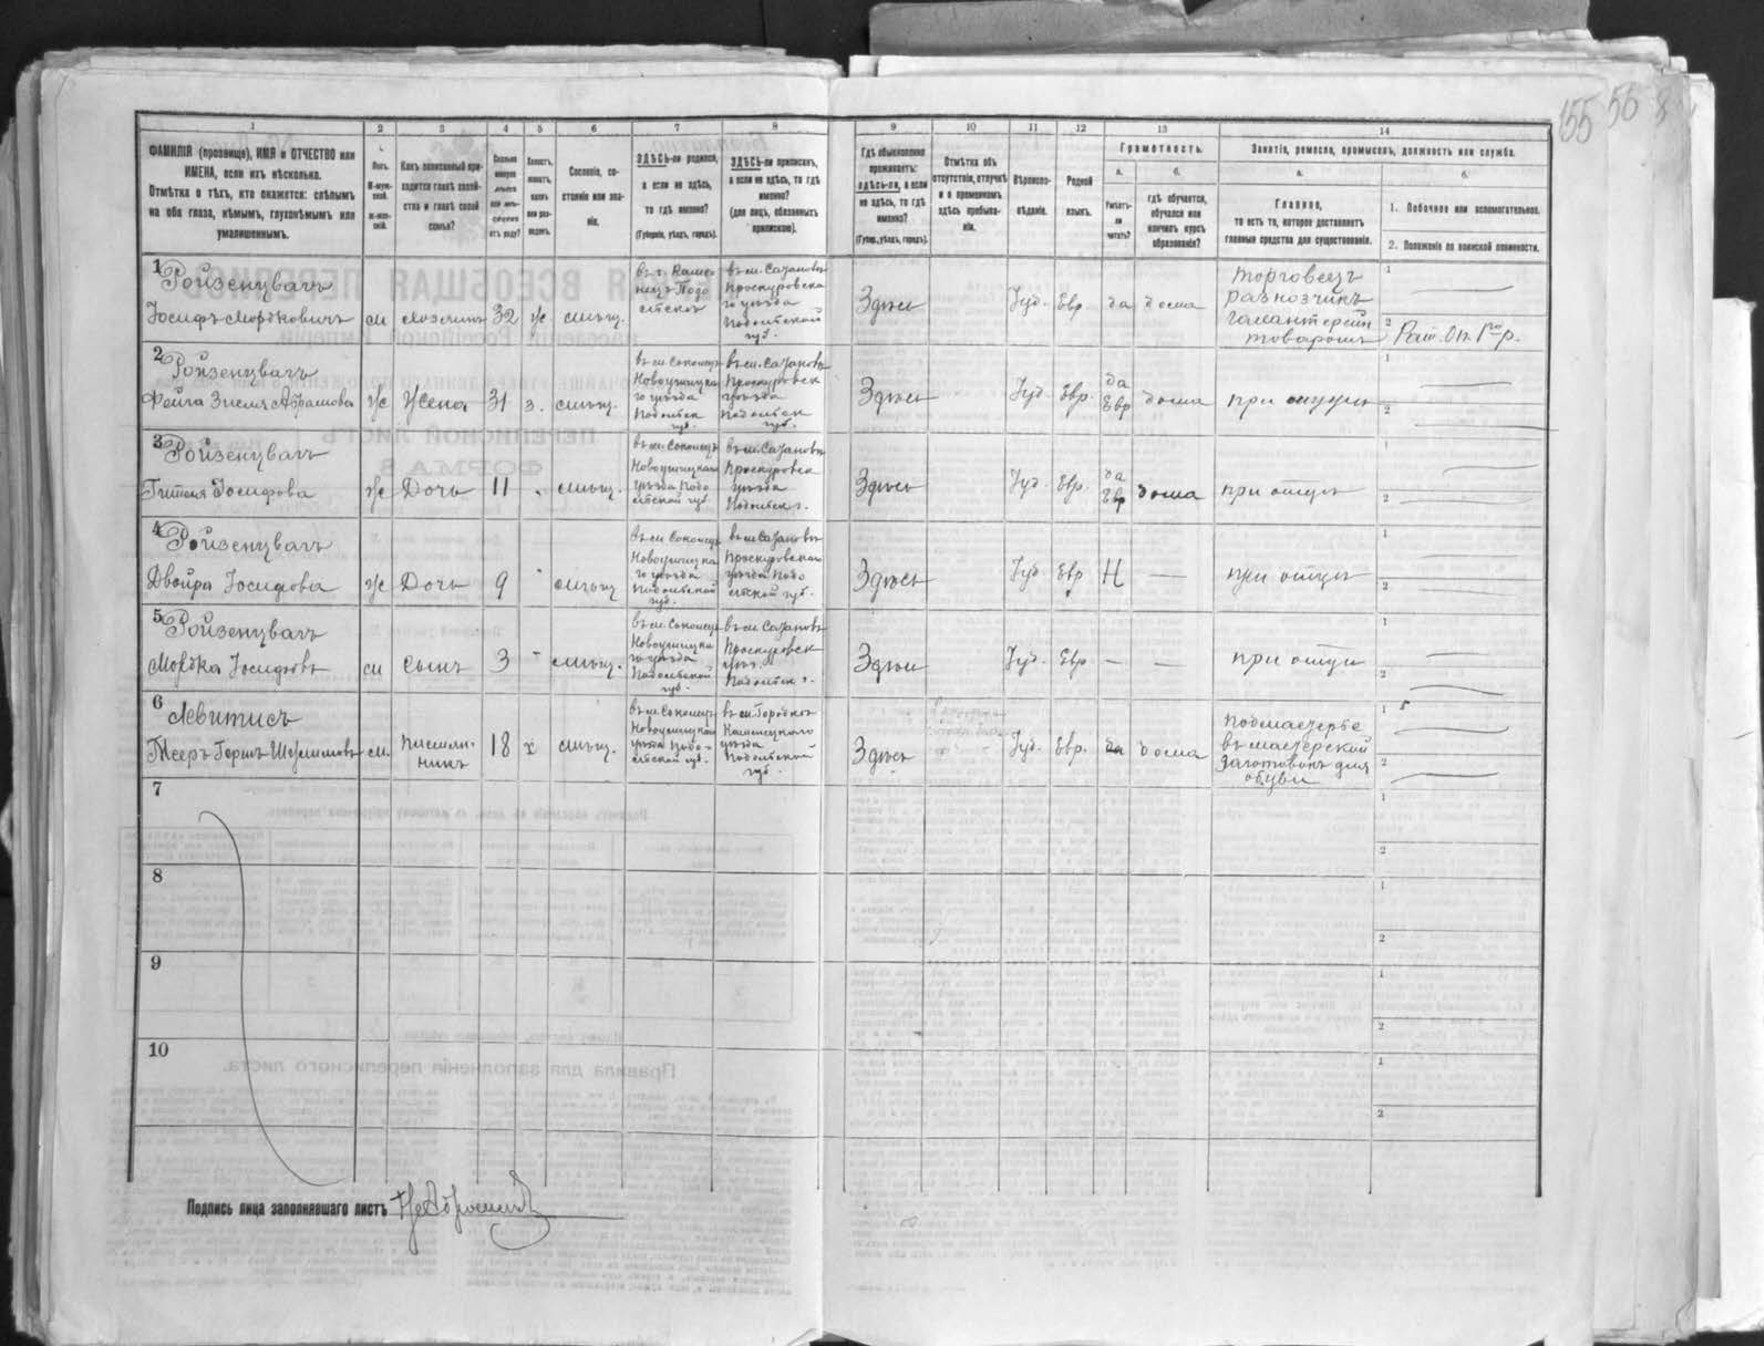 155 56
1 2 3 4 5 6 7 8 9 10 11 12 13 14
ФАМИЛІЯ (прозвище), ИМЯ и ОТЧЕСТВО или
ИМЕНА, если ихъ нѣсколько.
Отмѣтка о тѣхъ, кто окажется: слѣпымъ
на оба глаза, нѣмымъ, глухонѣмымъ или
умалишеннымъ.
Полъ.
М-муж-
ской.
Ж-жен-
скій.
Какъ записанный при-
ходится главѣ хозяй-
ства и главѣ своей
семьи?
Сколько
минуло
лѣтъ
или мѣ-
сяцевъ
отъ роду?
Холостъ,
женатъ,
вдовъ
или раз-
веденъ.
Сословіе, со-
стояніе или зва-
ніе.
ЗДѢСЬ-ли родился,
а если не здѣсь,
то гдѣ именно?
(Губернія, уѣздъ, городъ).
ЗДѢСЬ-ли приписанъ,
а если не здѣсь, то гдѣ
именно?
(для лицъ, обязанныхъ
припискою).
Гдѣ обыкновенно
проживаетъ:
здѣсь-ли, а если
не здѣсь, то гдѣ
именно?
(Губер., уѣздъ, городъ).
Отмѣтка объ
отсутствіи, отлучкѣ
и о временномъ
здѣсь пребыва-
ніи.
Вѣроиспо-
вѣданіе.
Родной
языкъ.
Грамотность.
а.
Умѣетъ-
ли
читать?
б.
гдѣ обучается,
обучался или
кончилъ курсъ
образованія?
Занятіе, ремесло, промыселъ, должность или служба.
а.
Главное,
то есть то, которое доставляетъ
главныя средства для существованія.
б.
1. Побочное или вспомогательное.
2. Положеніе по воинской повинности.
1
Ройзенцвагъ
Іосифъ Мордковичъ м хозяинъ 32 ж мѣщ.
въ г. Каме
нецъ-Подо
льскъ
въ м. Сазановъ
Проскуровска
го уѣзда
Подольской
губ.
Здѣсь Іуд. Евр да дома
торговецъ
разнозчикъ
галантерейн
товаромъ
1
2 Рат. Оп. 1го р.
2
Ройзенцвагъ
Фейга Зисля Абрамова ж Жена 31 з. мѣщ.
въ м. Соколецъ
Новоушицка
го уѣзда
Подольск
губ.
въ м. Сазановъ
Проскуровск
уѣзда
Подольск
губ.
Здѣсь Іуд. Евр.
да
Евр дома при мужѣ
1
2
3
Ройзенцвагъ
Гитля Іосифова ж Дочь 11 мѣщ.
въ м. Соколецъ
Новоушицкаго
уѣзда Подо
льской губ
въ м. Сазановъ
Проскуровск
уѣзда
Подольск г.
Здѣсь Іуд. Евр.
да
Евр дома при отцѣ
1
2
4
Ройзенцвагъ
Двойра Іосифова ж Дочь 9 мѣщ
въ м Соколецъ
Новоушицка
го уѣзда
Подольской
губ.
въ м Сазановъ
Проскуровскаго
уѣзда Подо
льской губ.
Здѣсь Іуд Евр Н — при отцѣ
1
2
5
Ройзенцвагъ
Мордка Іосифовъ м сынъ 3 мѣщ.
въ м. Соколецъ
Новоушицка
го уѣзда
Подольской
губ.
въ м Сазановъ
Проскуровск
уѣз.
Подольск г.
Здѣсь Іуд. Евр — — при отцѣ
1
2
6
Левитисъ
Мееръ Гершъ Шулимовъ м. 18 х мѣщ.
въ м Соколецъ
Новоушицкаго
уѣзда Подо-
льской губ.
въ м. Городокъ
Каменецкаго
уѣзда
Подольской
губ.
Здѣсь Іуд. Евр. да дома
подмастерье
въ мастерской
заготовокъ для
обуви
1
2
7
1
2
8
1
2
9
1
2
10
1
2
Подпись лица заполнявшаго листъ